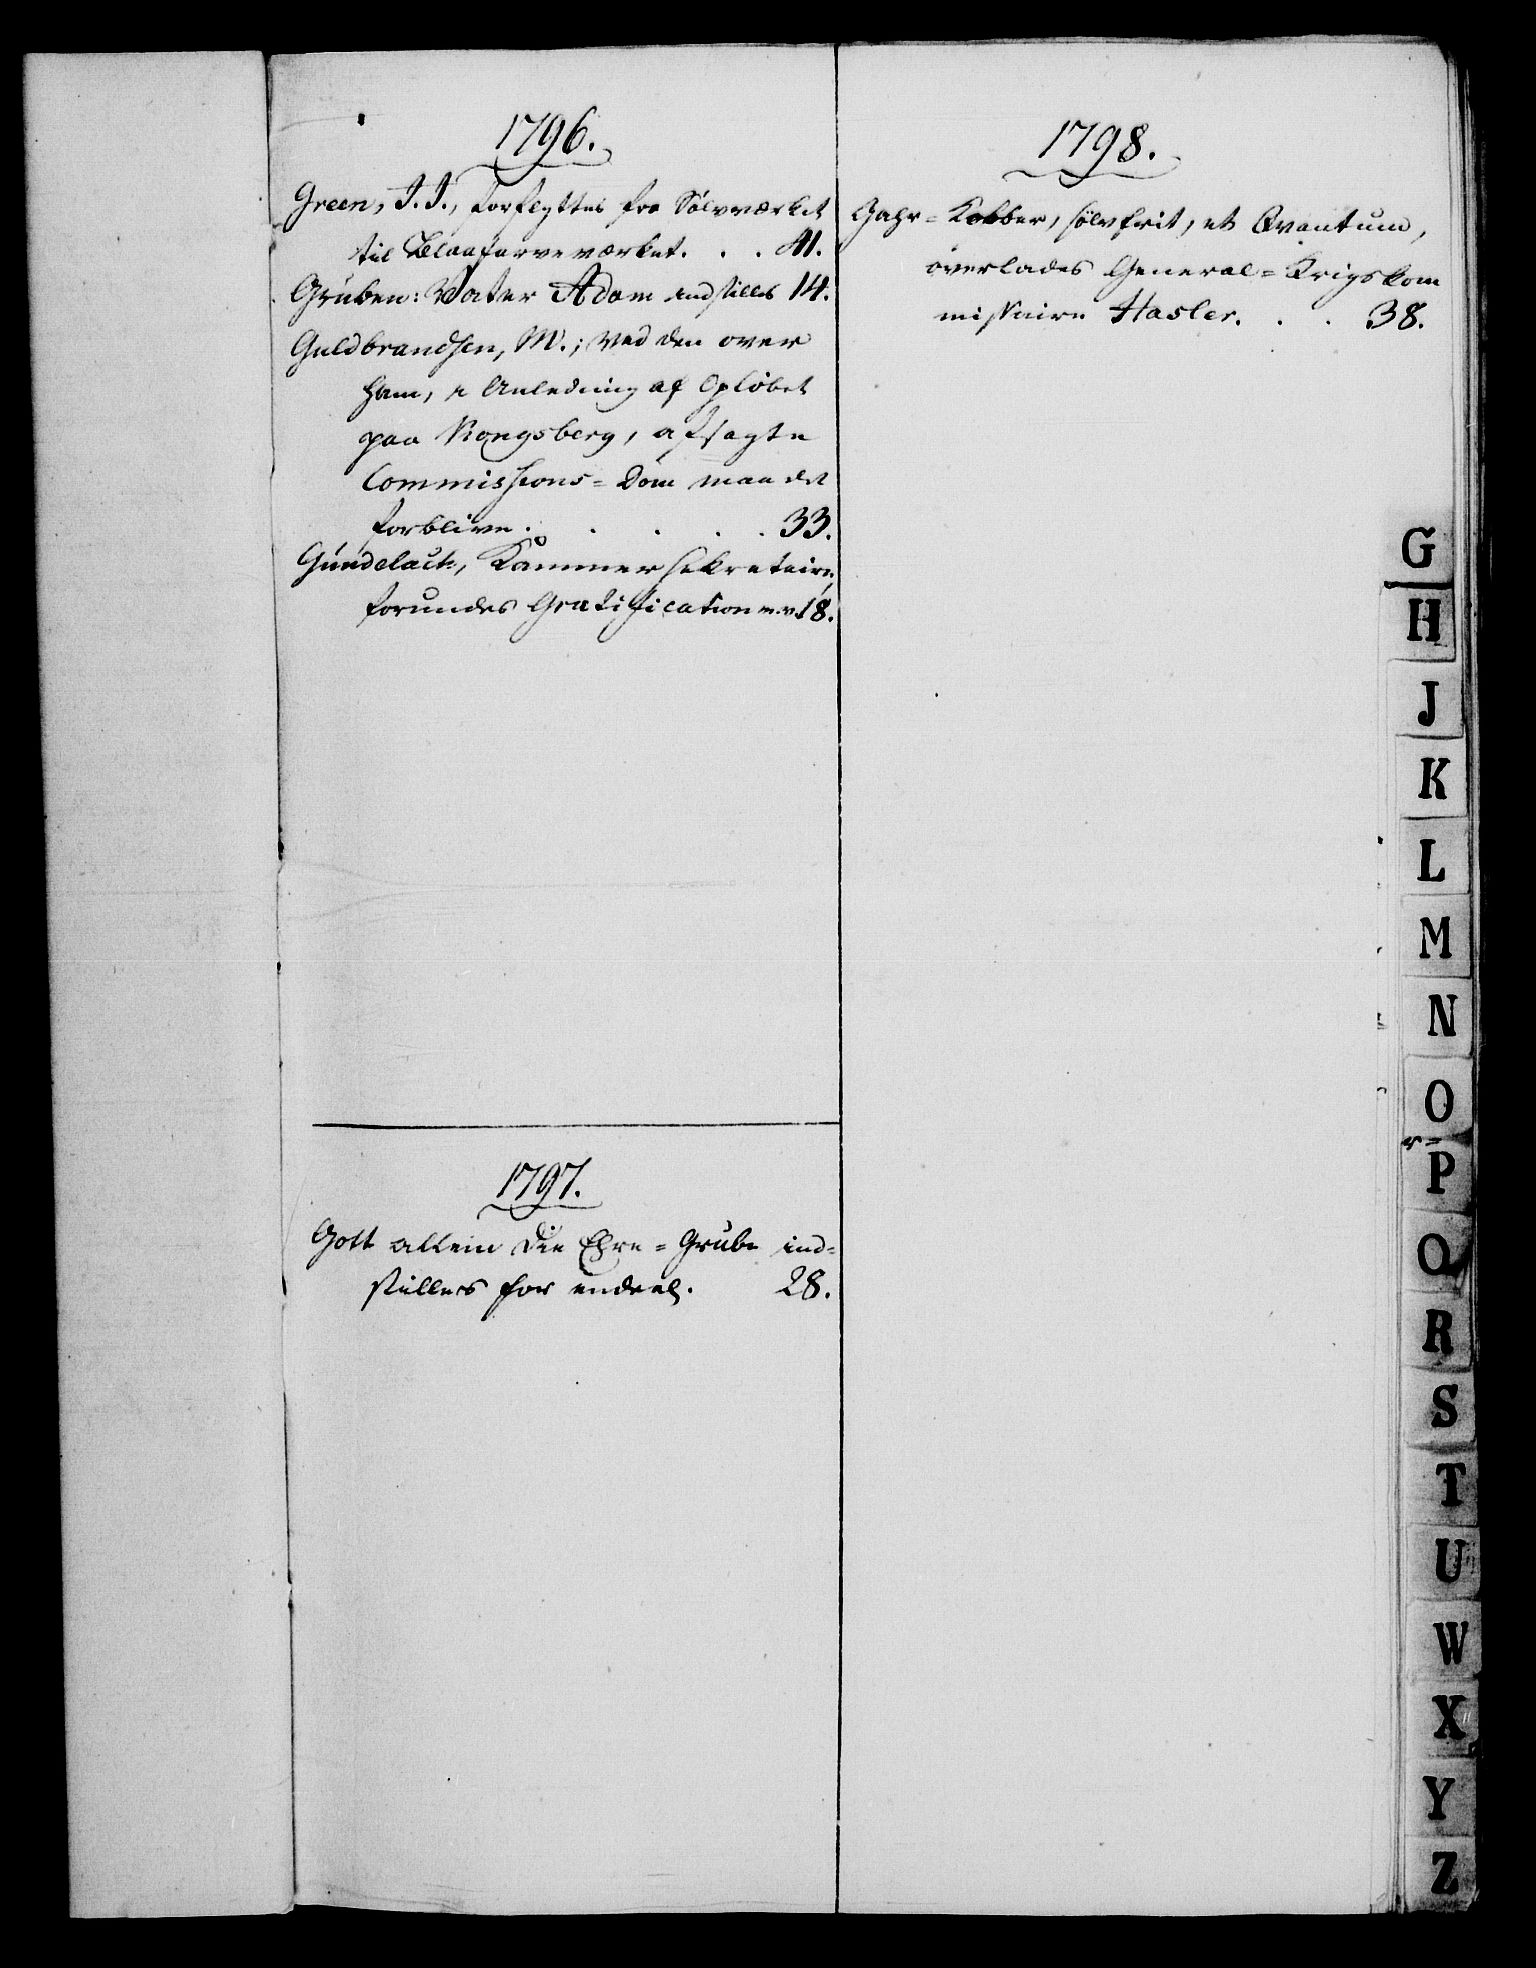 1796.
Green, J. J., forflyttes fra Sølvværket
til Blaafarveværket. . . 41.
Gruben: Vater Adam indstilles 14.
Guldbrandsen, M.; ved den over
ham, i Anledning af Opløbet
paa Kongsberg, afsagte
Commissions=Dom maae det
forblive . . . . . 33.
Gündelach, Kammersekretaire,
forundes Gratification 18.
1797.
Gott allein die Ehre=Grube ind=
stilles for endeel. 28.
1798.
Gahr=Kobber, sølvfrit, et Qvantum,
overlades General=Krigskom
missaire Hasler. . . 38.
G
H
J
K
L
M
N
O
P
Q
R
S
T
U
W
X
Y
Z